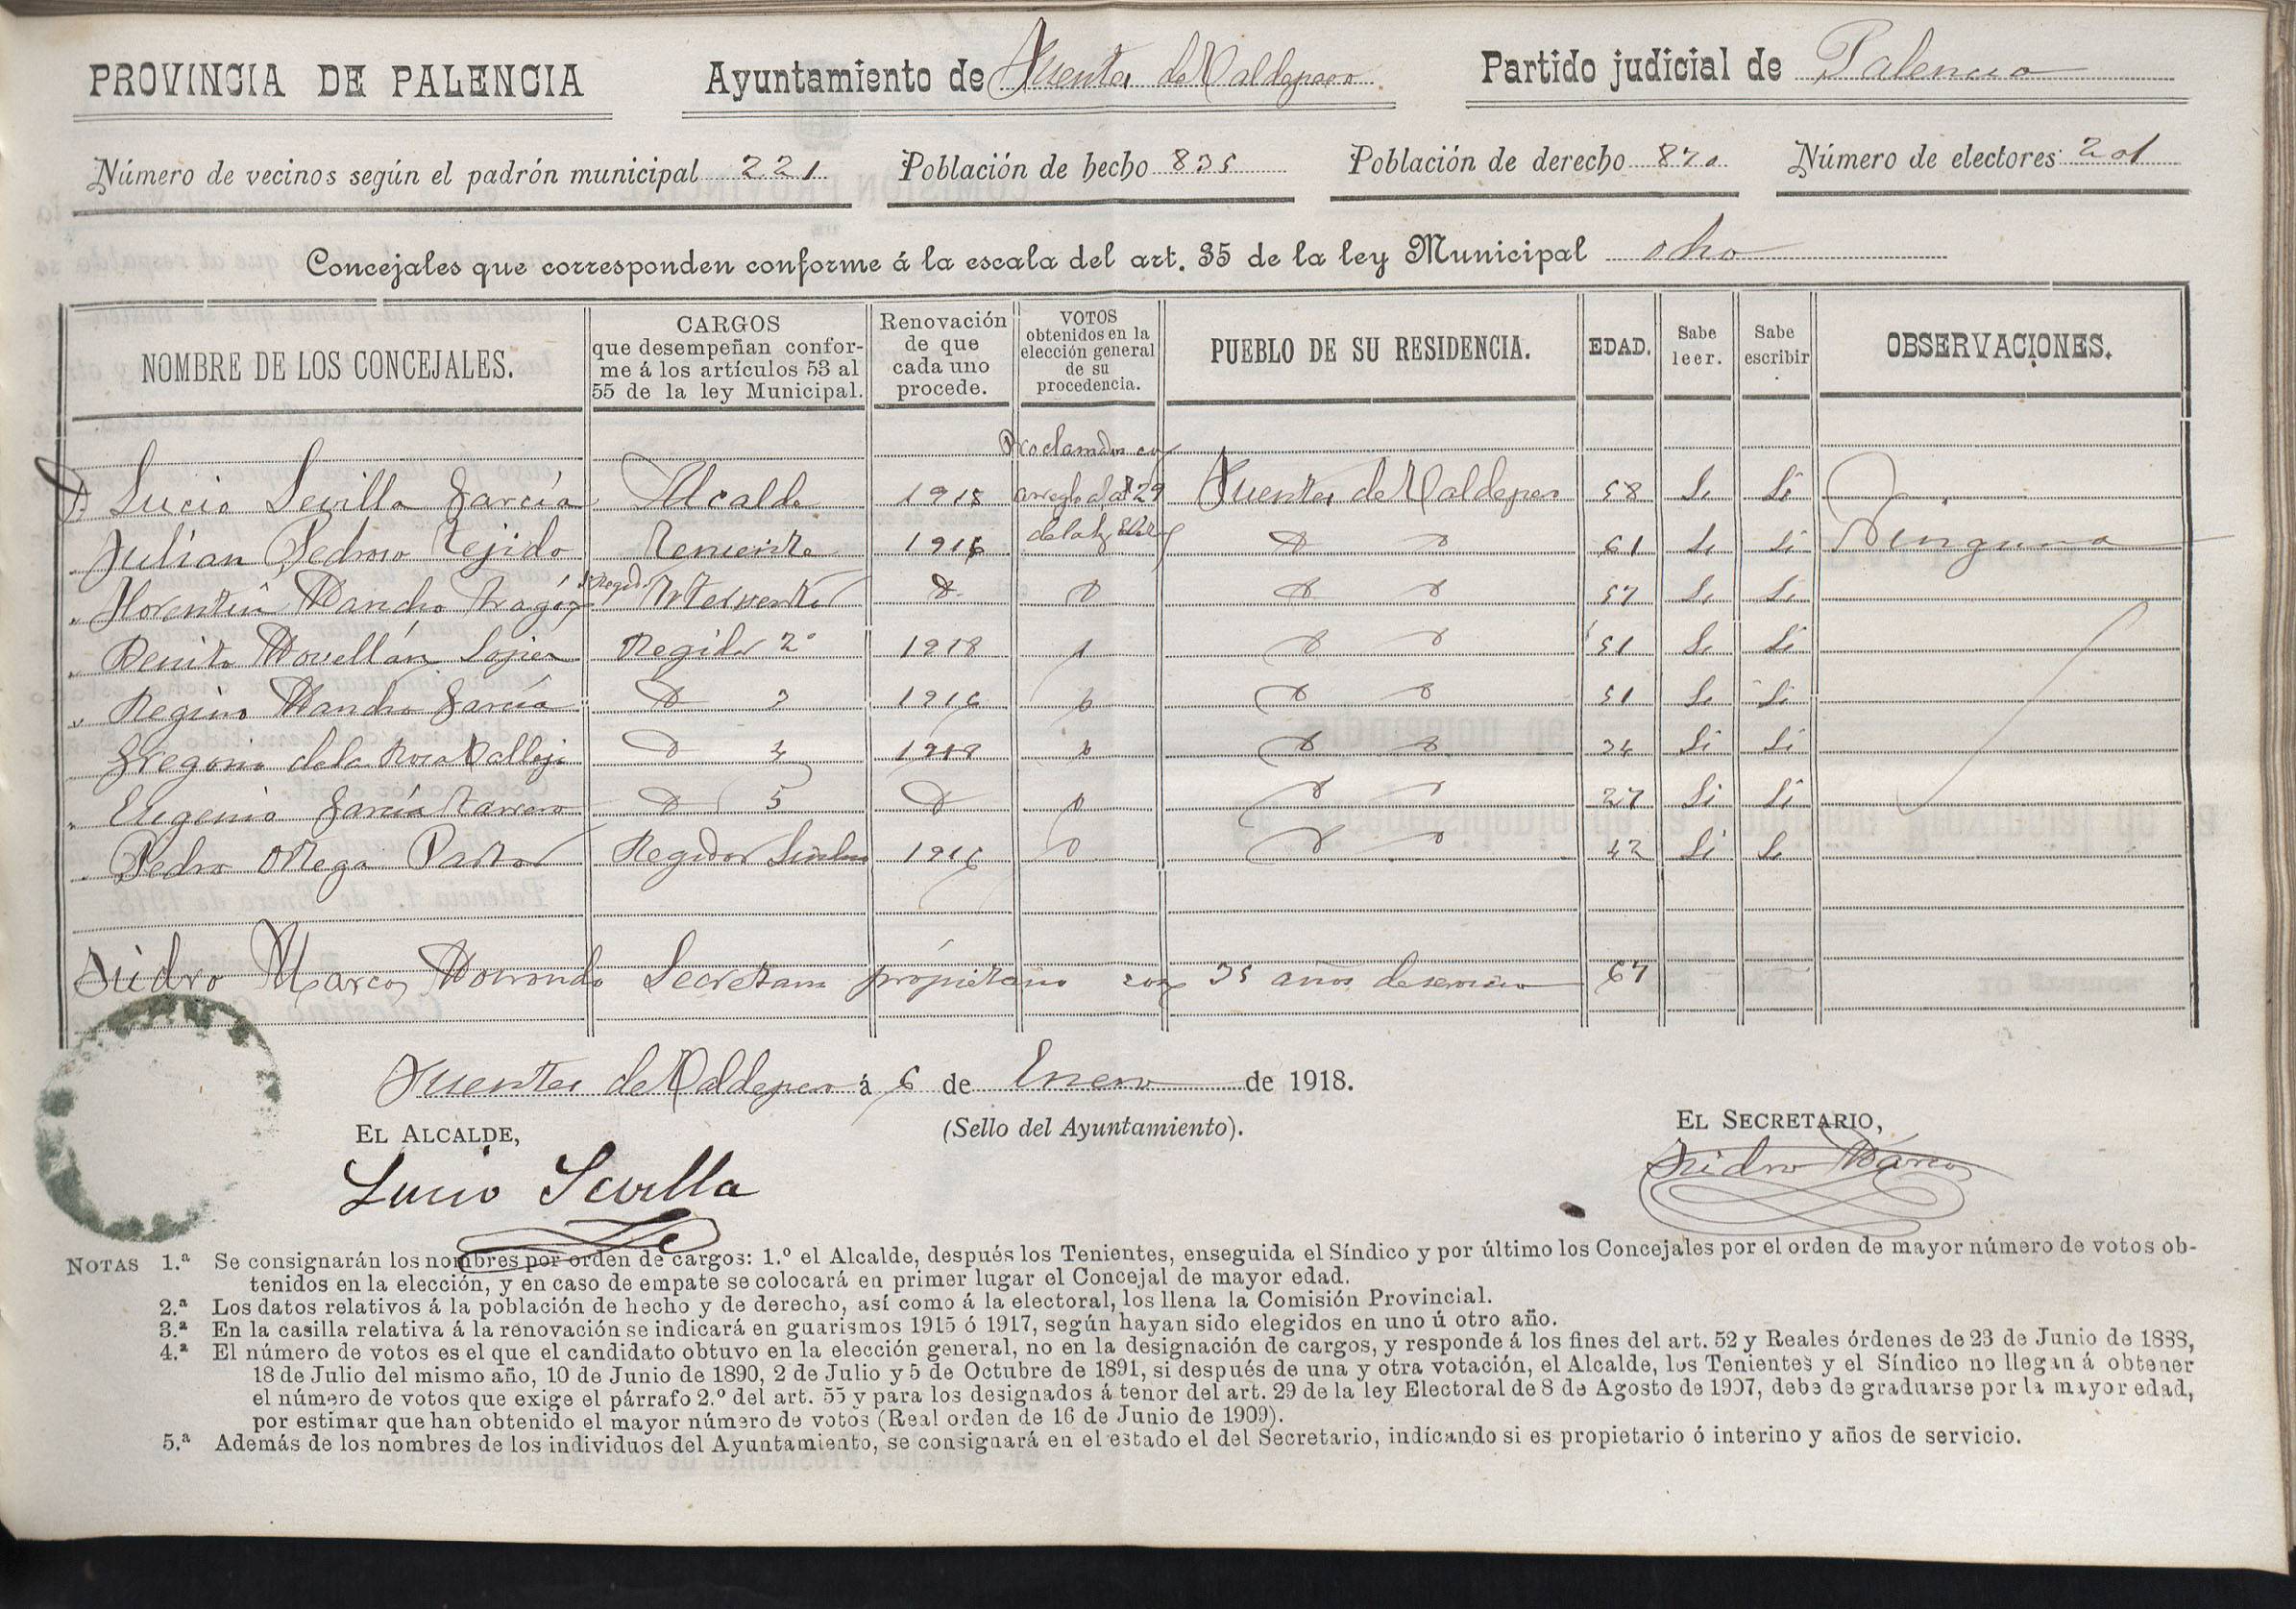 PROVINCIA DE PALENCIA Ayuntamiento de Fuentes de Valdepero Partido judicial de Palencia
Número de vecinos según el padrón municipal 221 Población de hecho 835 Población de derecho 870 Número de electores 201
Concejales que corresponden conforme á la escala del art. 35 de la ley Municipal ocho
NOMBRE DE LOS CONCEJALES. CARGOS que desempeñan conforme á los artículos 53 al 55 de la ley Municipal. Renovación de que cada uno procede. VOTOS obtenidos en la elección general de su procedencia. PUEBLO DE SU RESIDENCIA. EDAD. Sabe leer. Sabe escribir OBSERVACIONES.
Proclamados con
D. Lucio Sevilla García Alcalde 1918 arreglo al art 29 Fuentes de Valdepero 58 Si Si
Julian Pedroso Tejido Teniente 1916 de la ley Elec 61 Si Si Ninguna
" Florentin Mancho Aragón Regidor Interventor D 57 Si Si
" Benito Movellán López Regidor 2º 1918 51 Si Si
" Regino Mancho García D 3 1916 51 Si Si
Gregorio de la Rosa Vallejo D 4 1918 34 Si Si
" Eugenio García Tarrero D 5 D 27 Si Si
" Pedro Ortega Pastor Regidor Síndico 1916 42 Si Si
Isidro Marcos Mourondo Secretario propietario con 35 años de servicio 67
Fuentes de Valdepero á 6 de Enero de 1918.
EL ALCALDE, (Sello del Ayuntamiento). EL SECRETARIO,
Lucio Sevilla Isidro Marcos
NOTAS 1.ª Se consignarán los nombres por orden de cargos: 1.º el Alcalde, después los Tenientes, enseguida el Síndico y por último los Concejales por el orden de mayor número de votos ob-
tenidos en la elección, y en caso de empate se colocará en primer lugar el Concejal de mayor edad.
2.ª Los datos relativos á la población de hecho y de derecho, así como á la electoral, los llena la Comisión Provincial.
3.ª En la casilla relativa á la renovación se indicará en guarismos 1915 ó 1917, según hayan sido elegidos en uno ú otro año.
4.ª El número de votos es el que el candidato obtuvo en la elección general, no en la designación de cargos, y responde á los fines del art. 52 y Reales órdenes de 23 de Junio de 1888,
18 de Julio del mismo año, 10 de Junio de 1890, 2 de Julio y 5 de Octubre de 1891, si después de una y otra votación, el Alcalde, los Tenientes y el Síndico no llegan á obtener
el número de votos que exige el párrafo 2.º del art. 55 y para los designados á tenor del art. 29 de la ley Electoral de 8 de Agosto de 1907, debe de graduarse por la mayor edad,
por estimar que han obtenido el mayor número de votos (Real orden de 16 de Junio de 1909).
5.ª Además de los nombres de los individuos del Ayuntamiento, se consignará en el estado el del Secretario, indicando si es propietario ó interino y años de servicio.